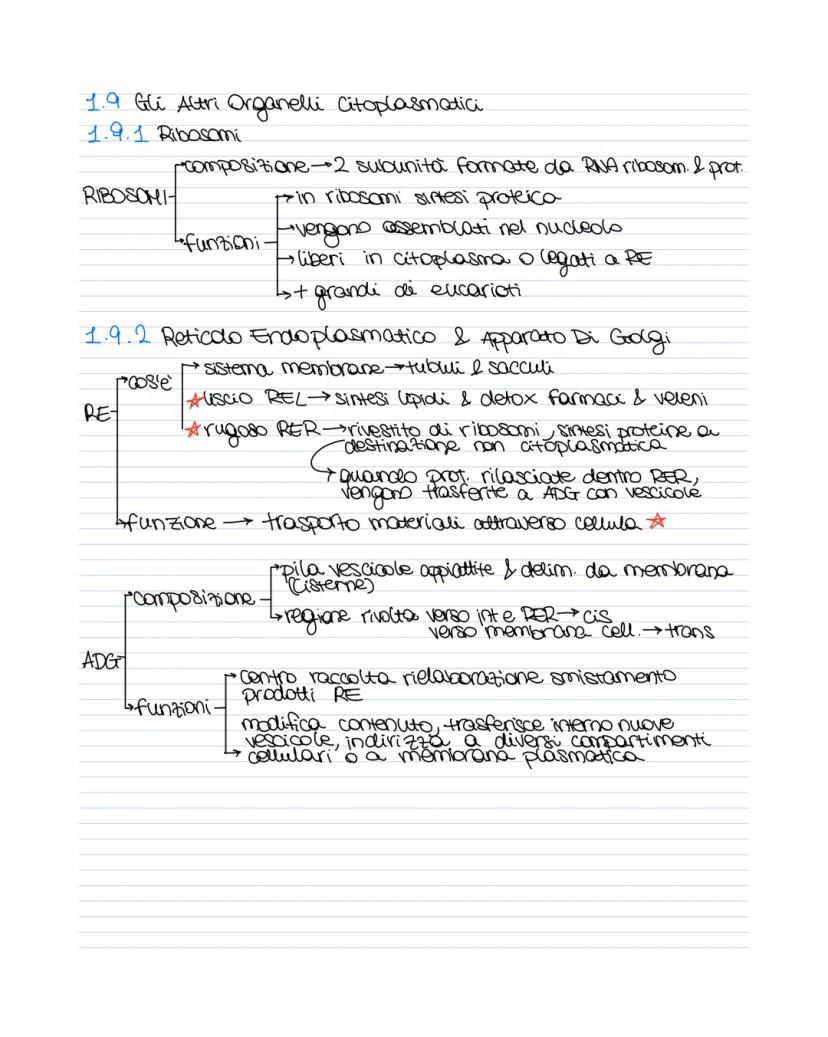 1.9 Gli Altri Organelli Citoplasmatici
1.9.1 Ribosomi
composizione → 2 subunità formate da RNA ribosom. & prot.
RIBOSOMI
→ in ribosomi sintesi proteica
→ vengono assemblati nel nucleolo
funzioni
→ liberi in citoplasma o legati a RE
→ + grandi di eucarioti
1.9.2 Reticolo Endoplasmatico & Apparato Di Golgi
→ sistema membrane → tubuli & sacculi
cos'è
☆ liscio REL → sintesi lipidi & detox farmaci & veleni
RE
☆ rugoso RER → rivestito di ribosomi, sintesi proteine a
destinazione non citoplasmatica
→ quando prot. rilasciate dentro RER,
vengono trasferite a ADG con vescicole
funzione → trasporto materiali attraverso cellula ☆
→ pila vescicole appiattite & delim. da membrana
(cisterne)
composizione
→ regione rivolta verso int e RER → cis
verso membrana cell. → trans
ADG
→ centro raccolta rielaborazione smistamento
prodotti RE
funzioni
modifica contenuto, trasferisce interno nuove
vescicole, indirizza a diversi compartimenti
→ cellulari o a membrana plasmatica